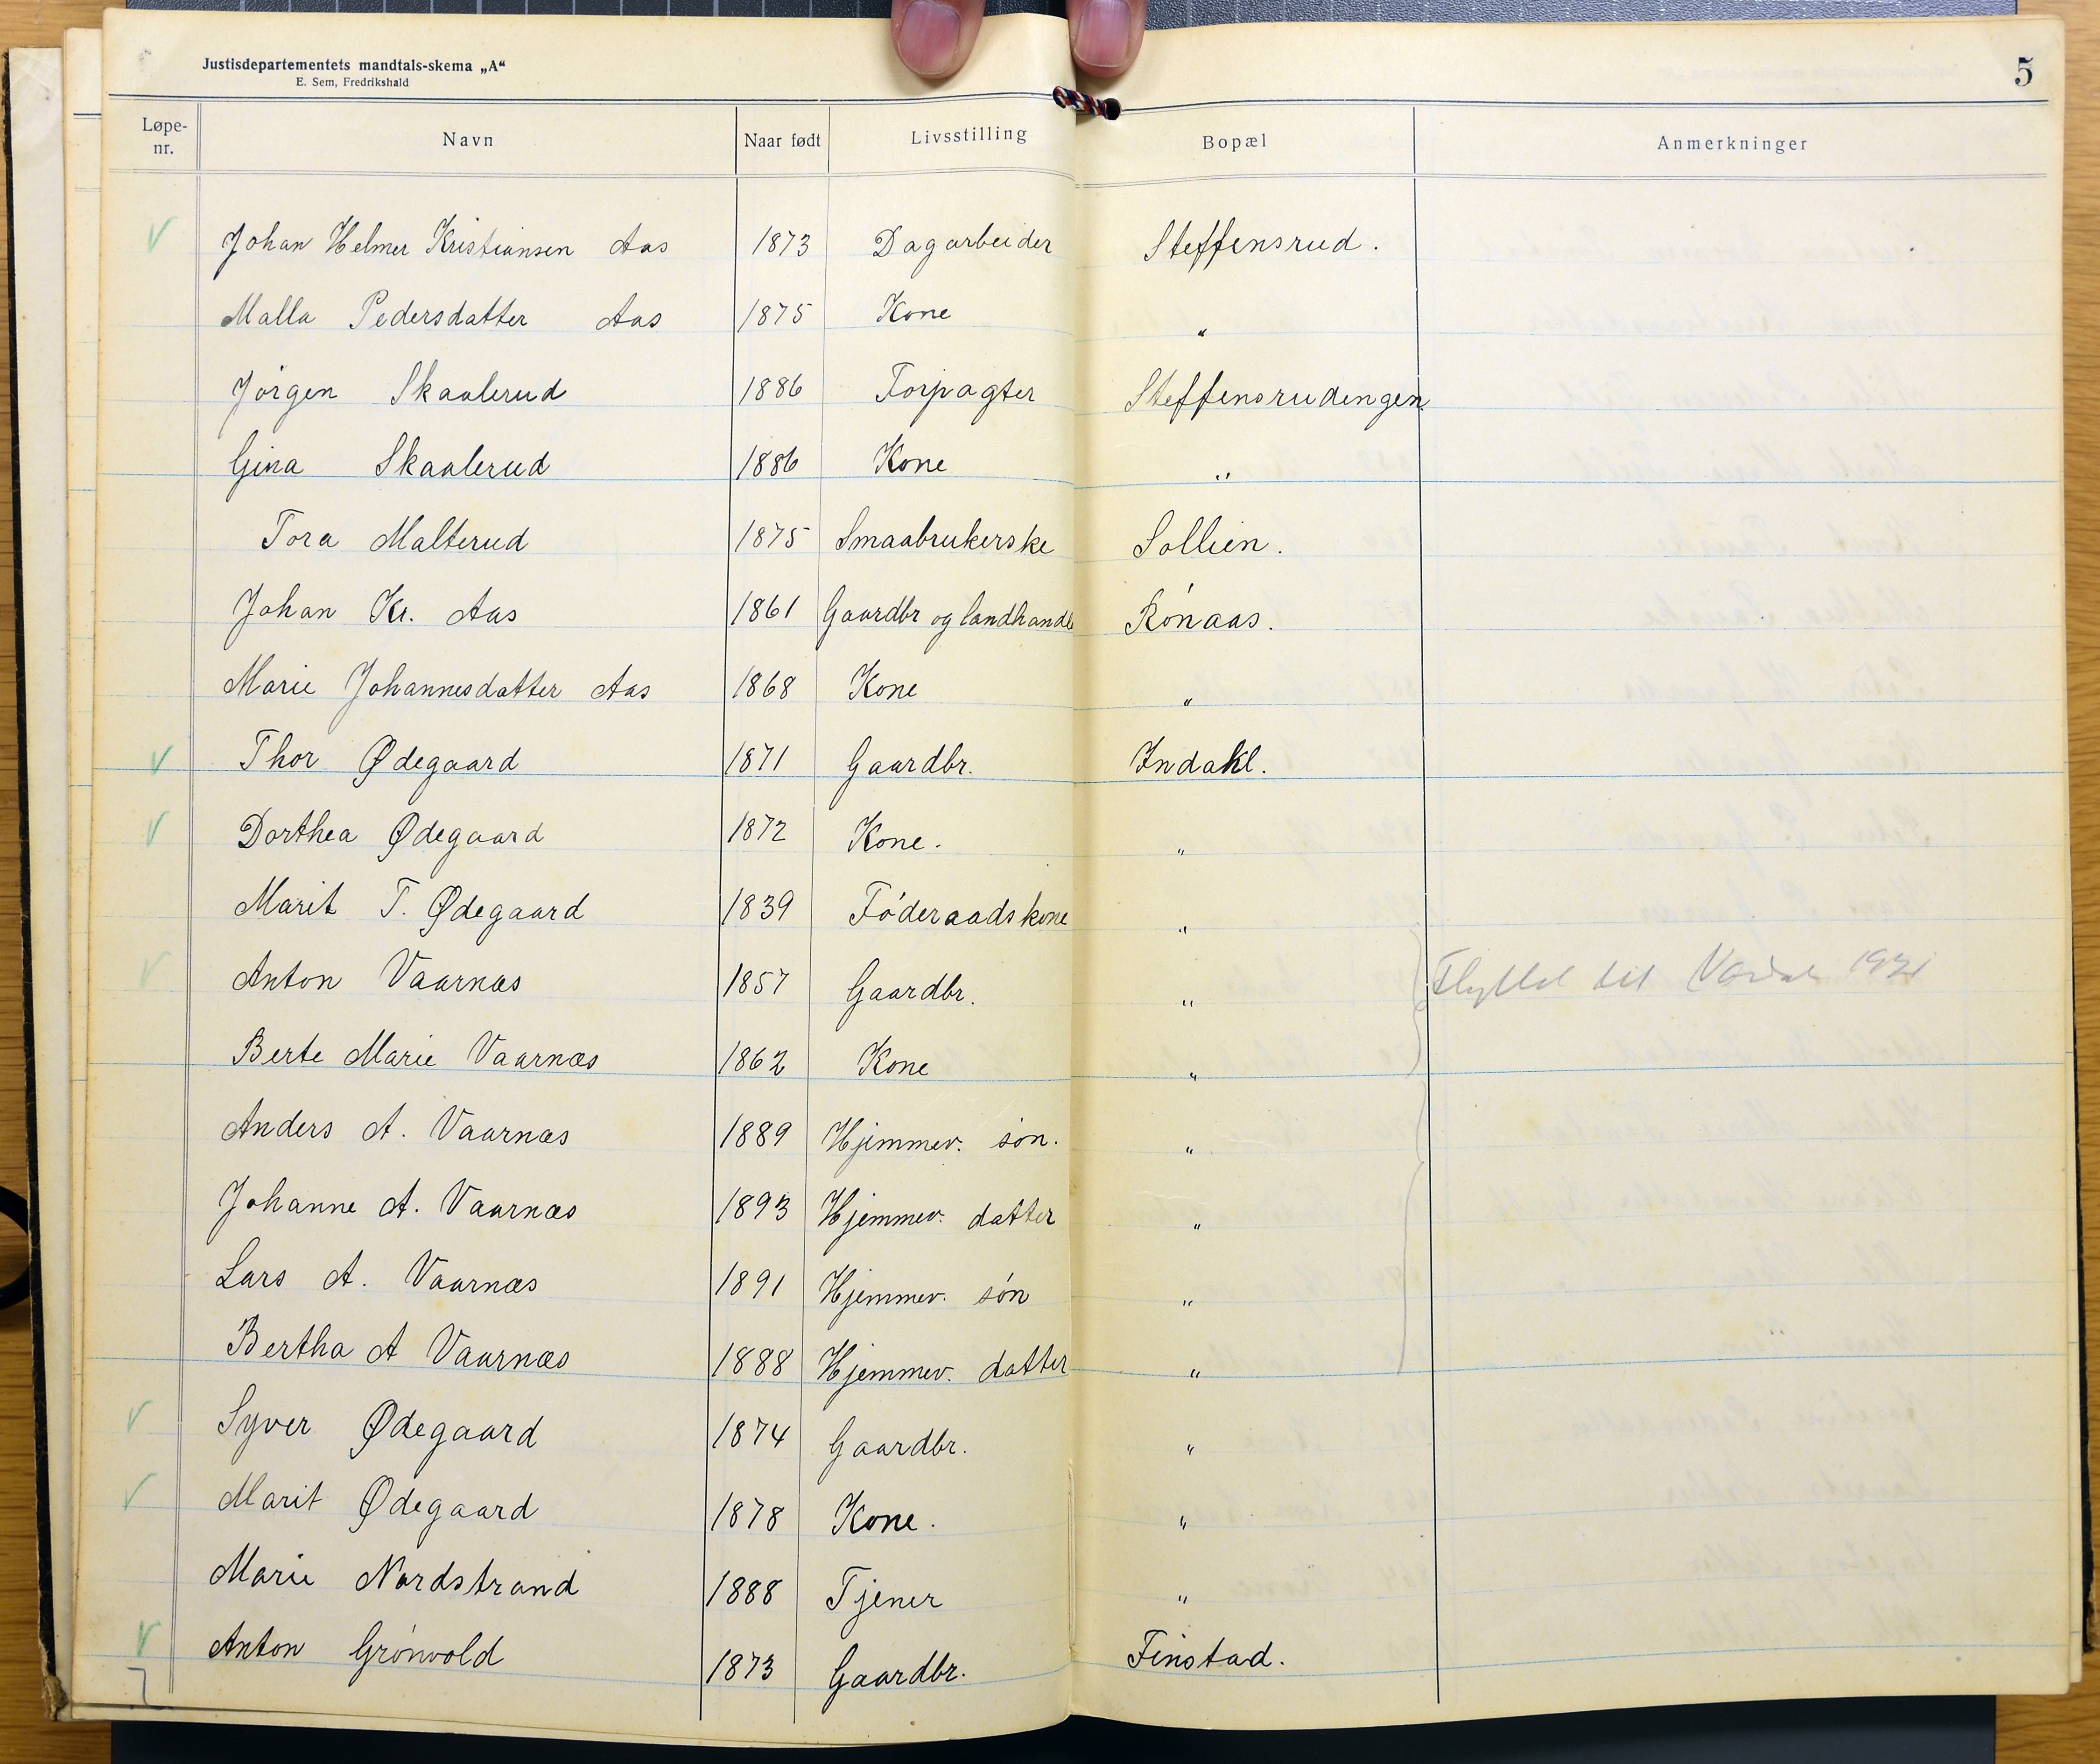 Justisdepartementets mandtals-skema „A“
E. Sem, Fredrikshald
5
Løpe-nr. Navn Naar født Livsstilling Bopæl Anmerkninger
Johan Helmer Kristiansen Aas 1873 Dagarbeider Steffensrud.
Malla Pedersdatter Aas 1875 Kone "
Jörgen Skaalerud 1886 Forpagter Steffensrudengen
Gina Skaalerud 1886 Kone "
Tora Malterud 1875 Smaabrukerske Sollien.
Johan Kr. Aas 1861 Gaardbr og landhandl Rónaas.
Marie Johannesdatter Aas 1868 Kone "
Thor Ødegaard 1871 Gaardbr. Indakl.
Dorthea Ødegaard 1872 Kone. "
Marit T. Ødegaard 1839 Fóderaadskone "
Anton Vaarnæs 1857 Gaardbr. " til 1921
Berte Marie Vaarnæs 1862 Kone "
Anders A. Vaarnæs 1889 Hjemmev. són. "
Johanne A. Vaarnæs 1893 Hjemmev. datter "
Lars A. Vaarnæs 1891 Hjemmev. són "
Bertha A Vaarnæs 1888 Hjemmev. datter "
Syver Ødegaard 1874 Gaardbr. "
Marit Ødegaard 1878 Kone. "
Marie Nordstrand 1888 Tjener "
Anton Grónvold 1873 Gaardbr. Finstad.
7